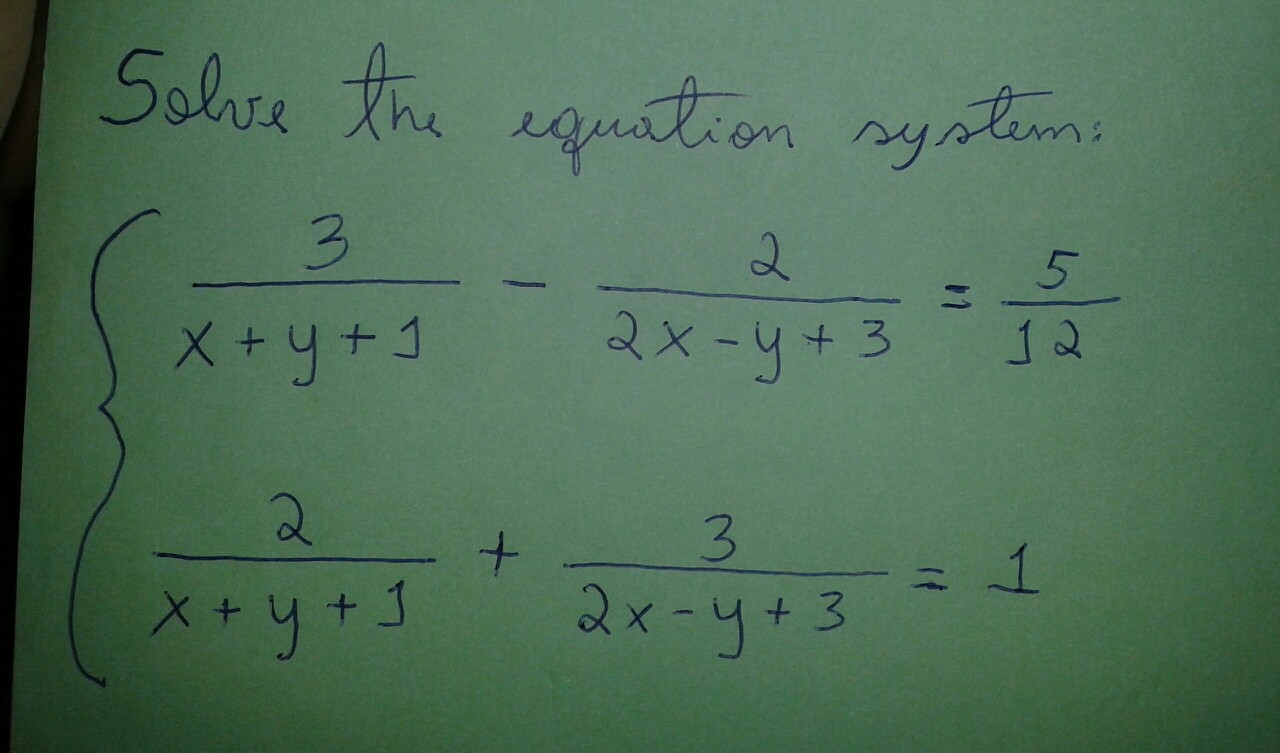 Solve the equation system:
3/(x+y+1) - 2/(2x-y+3) = 5/12
2/(x+y+1) + 3/(2x-y+3) = 1